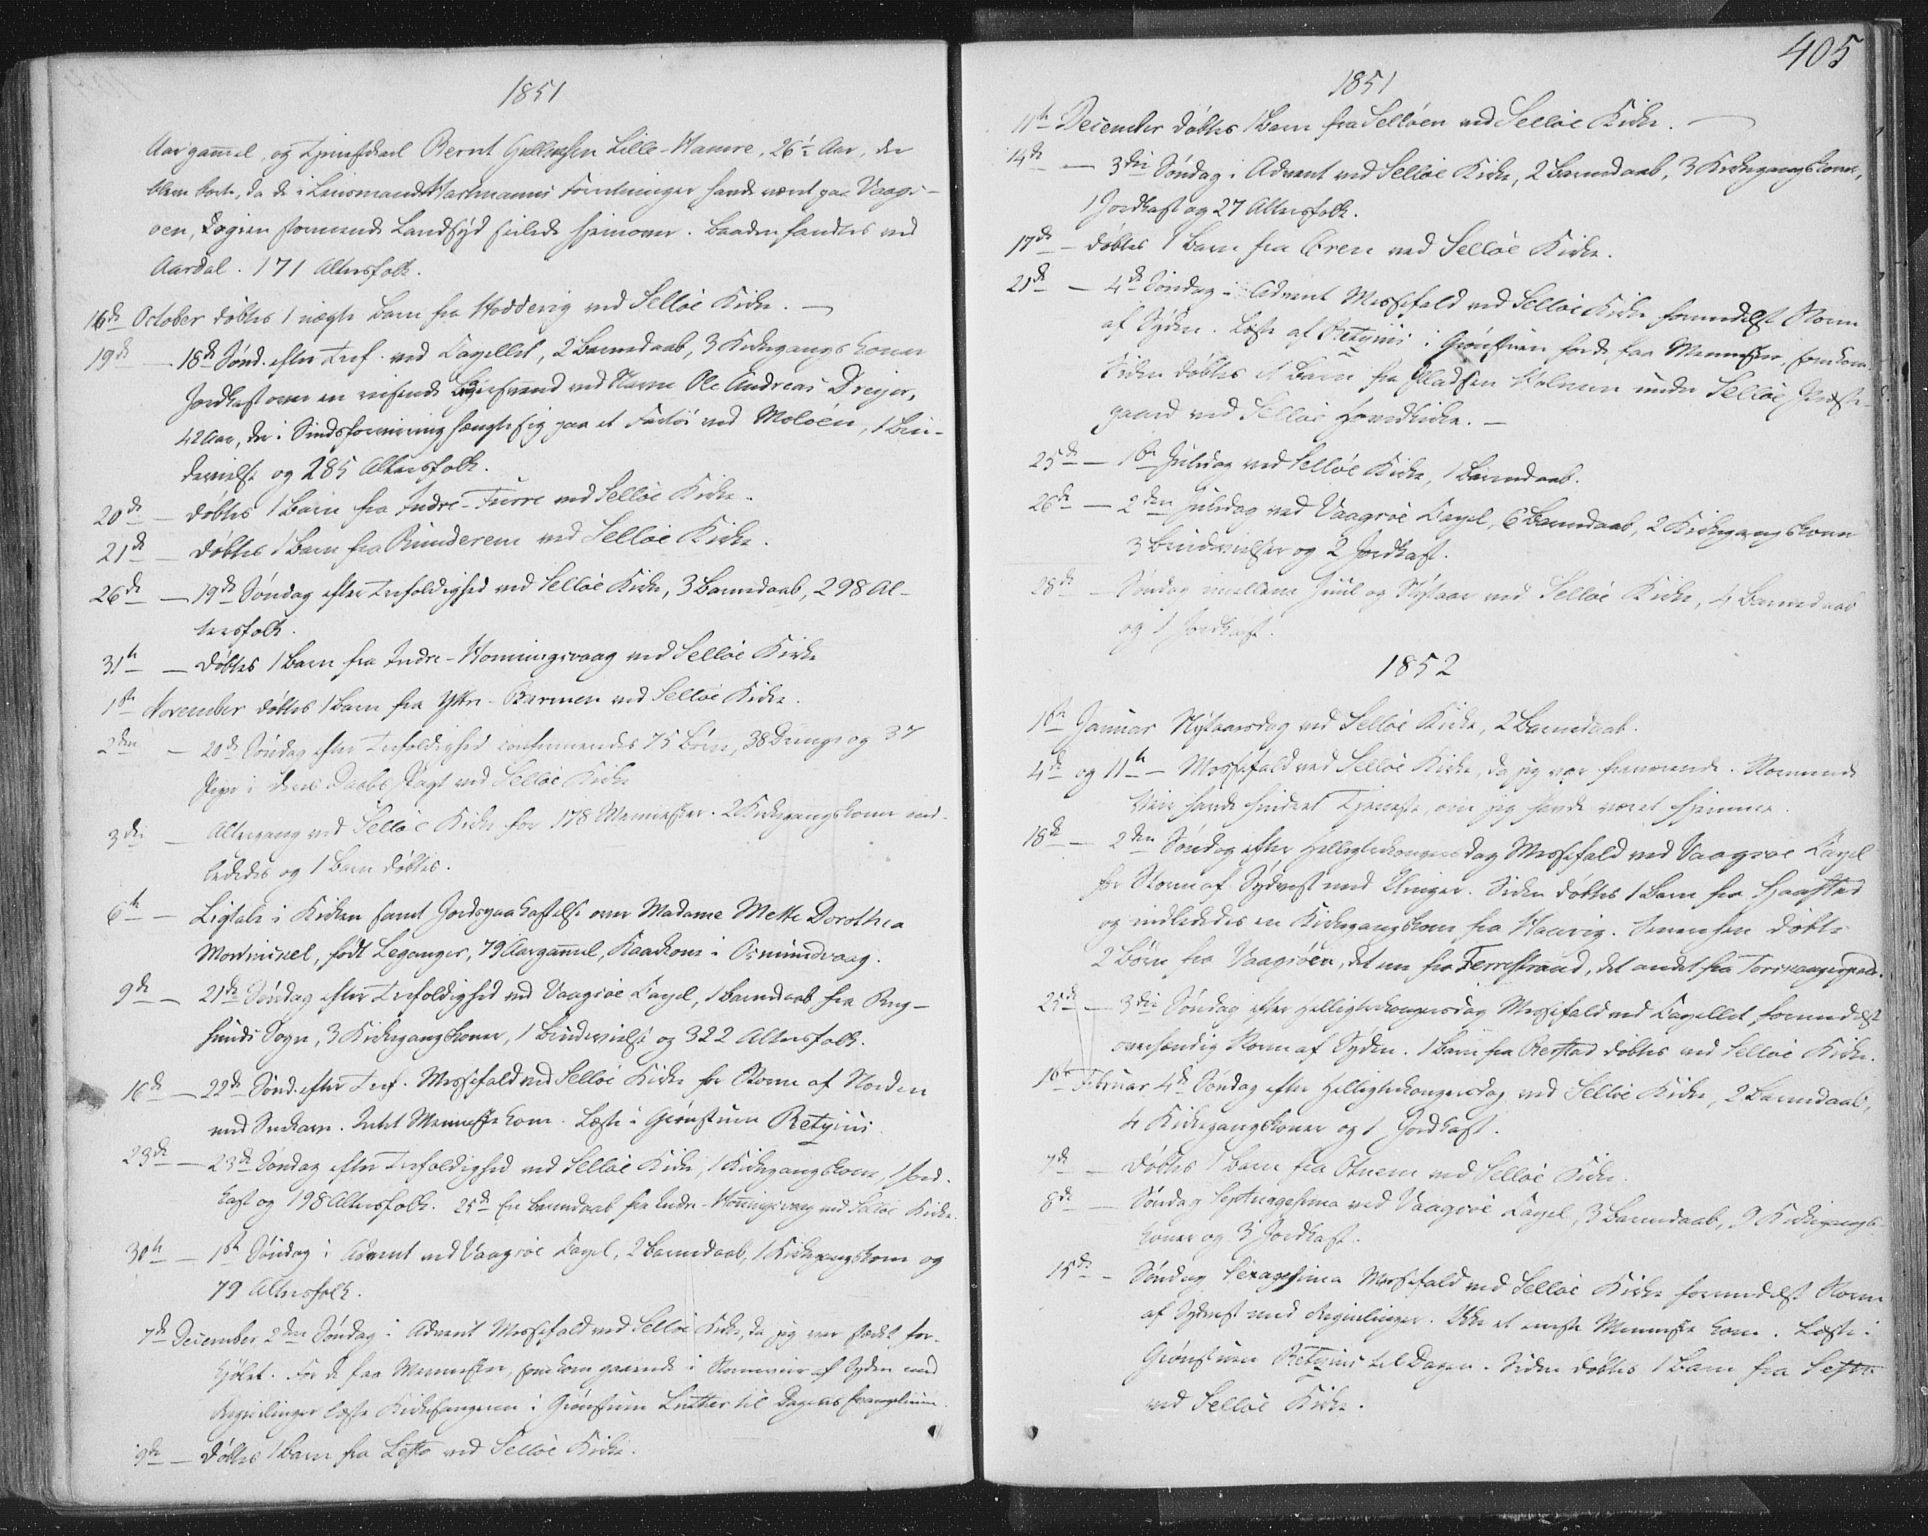 1851
Aar gammel, og Tjenestkarl Bernt Gullaksen Lille-Hamre, 26½ Aar, der
bleve borte, da de i Lensmand Hartmanns Forretninger havde været paa Vaags-
øen, og i en stormende Landsyd seilede hjemover. Baaden fandtes ved
Aardal. 171 Altersfolk.
16de October døbtes 1 uægte Barn fra Hoddevig ved Selløe Kirke. —
19de — 18de Sønd. efter Tref. ved Capellet, 2 Barnedaab, 3 Kirkegangskoner
Jordkast over en reisende ved Navn Ole Andreas Dreyer,
42 Aar, der i Sindsforvirring hængte sig paa et Fartøi ved Moløen, 1 Bru-
devielse og 285 Altersfolk.
20de — døbtes 1 Barn fra Indre-Furre ved Selløe Kirke.
21de — døbtes 1 Barn fra Runderem ved Selløe Kirke.
26de — 19de Søndag efter Trefoldighed ved Selløe Kirke, 3 Barnedaab, 298 Al-
tersfolk.
31te — døbtes 1 Barn fra Indre-Honningsvaag ved Selløe Kirke
1ste November døbtes 1 Barn fra Yttre-Barmen ved Selløe Kirke.
2den — 20de Søndag efter Trefoldighed confirmeredes 75 Børn, 38 Drenge og 37
Piger i deres Daabs Pagt ved Selløe Kirke
3die — Altergang ved Selløe Kirke for 178 Mennesker. 2 Kirkegangskoner ind-
lededes og 1 Barn døbtes.
6te — Ligtale i Kirken samt Jordspaakastelse over Madame Mette Dorothea
Mowinckel, født Leganger, 79 Aar gammel, Kaarkone i Osmundvaag.
9de — 21de Søndag efter Trefoldighed ved Vaagsøe Capel, 1 Barnedaab fra Rug-
sunds Sogn, 3 Kirkegangskoner, 1 Brudevielse og 322 Altersfolk.
16de — 22de Sønd. efter Tref. Messefald ved Selløe Kirke for Storm af Norden
med Snekave. Intet Menneske kom. Læste i Grønstuen Retzius
23de — 23de Søndag efter Trefoldighed ved Selløe Kirke, 1 Kirkegangskone, 1 Jord-
kast og 198 Altersfolk. 25de En Barnedaab fra Indre-Honningsvaag ved Selløe Kirke.
30te — 1ste Søndag i Advent ved Vaagsøe Capel, 2 Barnedaab, 1 Kirkegangskone og
79 Altersfolk.
7de December 2den Søndag i Advent Messefald ved Selløe Kirke, da jeg var stærkt for-
kjølet. For de faa Mennesker, som kom gaaende i Stormveir af Syden med
Regnilinger læste Kirkesangeren i Grønstuen Luther til Dagens Evangelium.
9de — døbtes 1 Barn fra Lefto ved Selløe Kirke.
405
1851
11te December døbtes 1 Barn fra Selløen ved Selløe Kirke. —
14de — 3die Søndag i Advent ved Selløe Kirke, 2 Barnedaab, 3 Kirkegangskoner,
1 Jordkast og 27 Altersfolk.
17de — døbtes 1 Barn fra Eren ved Selløe Kirke.
21de — 4de Søndag i Advent Messefald ved Selløe Kirke formedelst Storm
af Syden. Læste af Retzius i Grønstuen for de faa Mennesker, som kom.
Siden døbtes 1 Barn fra Pladsen Holmen under Selløe Præste-
gaard ved Selløe Hovedkirke. —
25de — 1ste Juledag ved Selløe Kirke, 1 Barnedaab.
26de — 2den Juledag ved Vaagsøe Capel, 6 Barnedaab, 2 Kirkegangskoner
3 Brudevielser og 2 Jordkast.
28de — Søndag imellem Juul og Nytaar ved Selløe Kirke, 4 Barnedaab
og 1 Jordkast.
1852
1ste Januar Nytaarsdag ved Selløe Kirke, 2 Barnedaab.
4de og 11te — Messefald ved Selløe Kirke, da jeg var fraværende. Stormende
Veir havde hindret Tjeneste, om jeg havde været hjemme.
18de — 2den Søndag efter Helligtrekongersdag Messefald ved Vaagsøe Capel
for Storm af Sydvest med Elinger. Siden døbtes 1 Barn fra Haastad
og indlededes en Kirkegangskone fra Haavig. Ligesaa døbtes
2 Børn fra Vaagsøen, det ene fra Ferrestrand, det andet fra
25de — 3die Søndag efter Helligtrekongersdag Messefald ved Capellet, formedelst
overhændig Storm af Syden. 1 Barn fra Berstad døbtes ved Selløe Kirke.
1ste Februar 4de Søndag efter Helligtrekongersdag ved Selløe Kirke, 2 Barnedaab,
4 Kirkegangskoner og 1 Jordkast.
7de — døbtes 1 Barn fra Otnem ved Selløe Kirke.
8de — Søndag Septuagesima ved Vaagsøe Capel, 3 Barnedaab, 9 Kirkegangs-
koner og 3 Jordkast.
15de — Søndag Sexagesima Messefald ved Selløe Kirke formedelst Storm
af Sydvest med Regnelinger. Ikke et eneste Menneske kom. Læste i
Grønstuen Retzius til Dagen. Siden døbtes 1 Barn fra Lefto
ved Selløe Kirke.